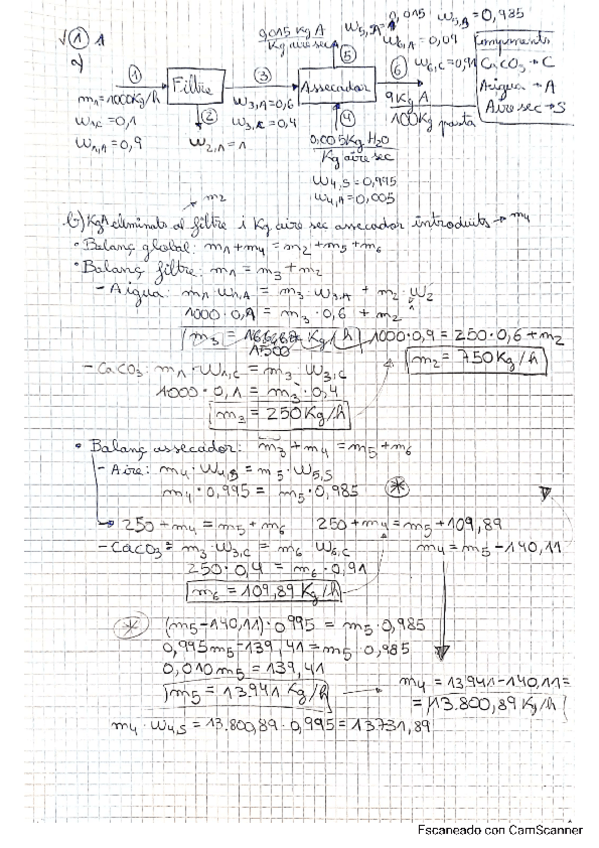 √ ① A
0,015 kg A / Kg aire sec
w5,A = 0,015 w5,S = 0,985
w6,A = 0,09
w6,C = 0,91
Components
CaCO3 → C
Aigua → A
Aire sec → S
① Filtre ③ Assecador ⑤ ⑥
m1 = 1000 Kg/h
w1,C = 0,1
w1,A = 0,9
②
w2,A = 1
w3,A = 0,6
w3,C = 0,4
④
0,005 Kg H2O / Kg aire sec
w4,S = 0,995
w4,A = 0,005
9 Kg A / 100 Kg pasta
m2
b) Kg A eliminats al filtre i Kg aire sec assecador introduits → m4
• Balanç global: m1 + m4 = m2 + m5 + m6
• Balanç filtre: m1 = m3 + m2
- Aigua: m1 · w1,A = m3 · w3,A + m2 · w2
1000 · 0,9 = m3 · 0,6 + m2
m3 = Kg/h 1000 · 0,9 = 250 · 0,6 + m2
1500
m2 = 750 Kg/h
- CaCO3: m1 · w1,C = m3 · w3,C
1000 · 0,1 = m3 · 0,4
m3 = 250 Kg/h
• Balanç assecador: m3 + m4 = m5 + m6
- Aire: m4 · w4,S = m5 · w5,S
m4 · 0,995 = m5 · 0,985 *
250 + m4 = m5 + m6 250 + m4 = m5 + 109,89
- CaCO3 = m3 · w3,C = m6 · w6,C m4 = m5 - 140,11
250 · 0,4 = m6 · 0,91
m6 = 109,89 Kg/h
* (m5 - 140,11) · 0,995 = m5 · 0,985
0,995 m5 - 139,41 = m5 · 0,985
0,010 m5 = 139,41
m5 = 13.941 Kg/h
m4 = 13941 - 140,11 =
= 13.800,89 Kg/h
m4 · w4,S = 13.800,89 · 0,995 = 13731,89
Escaneado con CamScanner